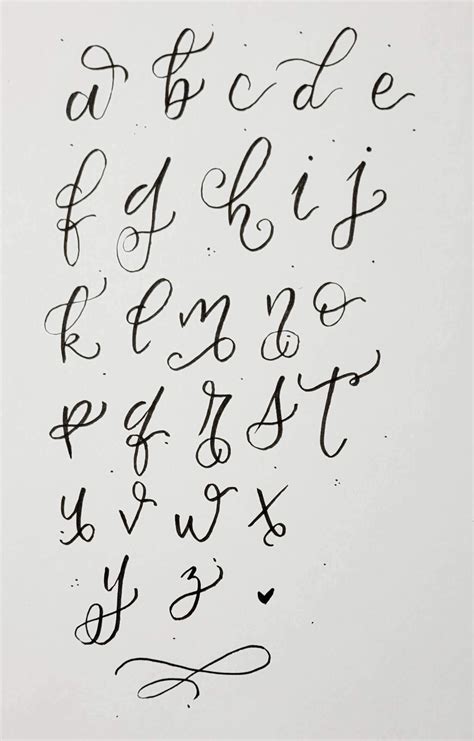 a b c d e
f g h i j
k l m n o
p q r s t
u v w x
y z ♥